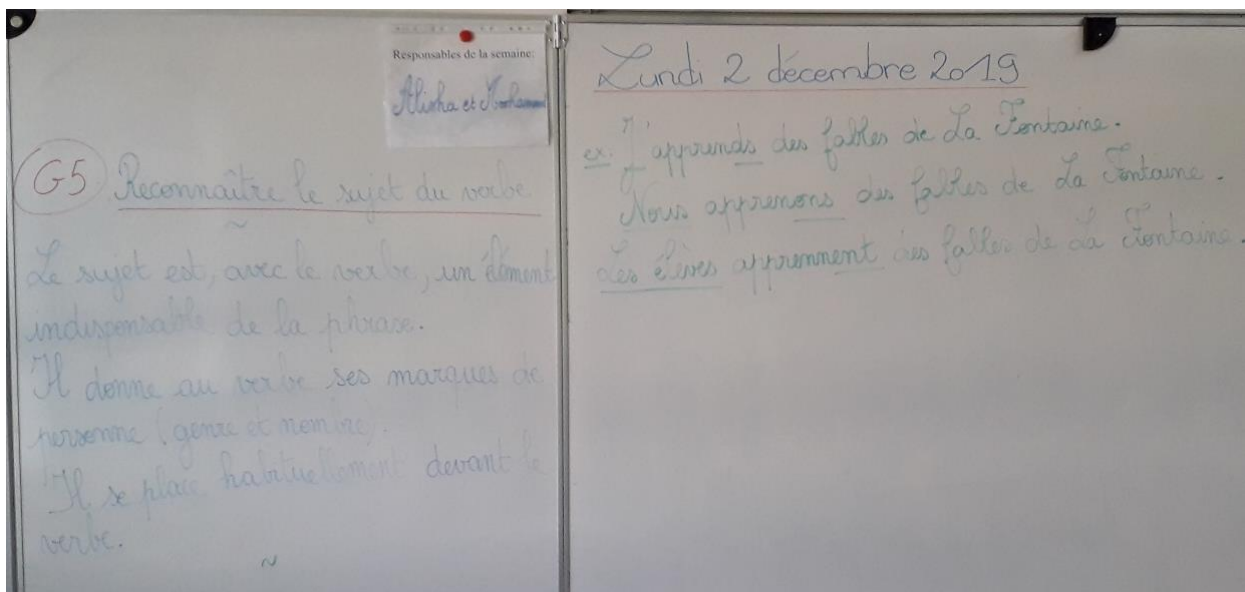 Responsables de la semaine:
Alisha et Mohamed
G5 Reconnaître le sujet du verbe
~
Le sujet est, avec le verbe, un élément
indispensable de la phrase.
Il donne au verbe ses marques de
personne (genre et nombre).
Il se place habituellement devant le
verbe.
~
Lundi 2 décembre 2019
ex: J'apprends des fables de La Fontaine.
Nous apprenons des fables de La Fontaine.
Les élèves apprennent des fables de La Fontaine.